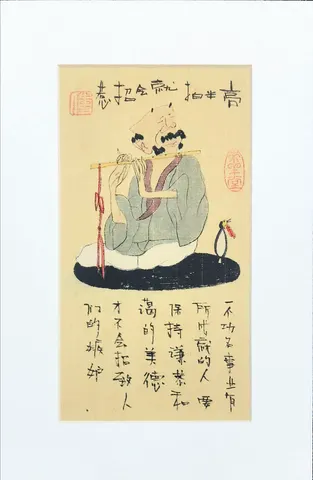 高半拍就会招惹
一个功名事业有
所成就的人要
保持谦恭和
蔼的美德
才不会招致人
们的嫉妒.